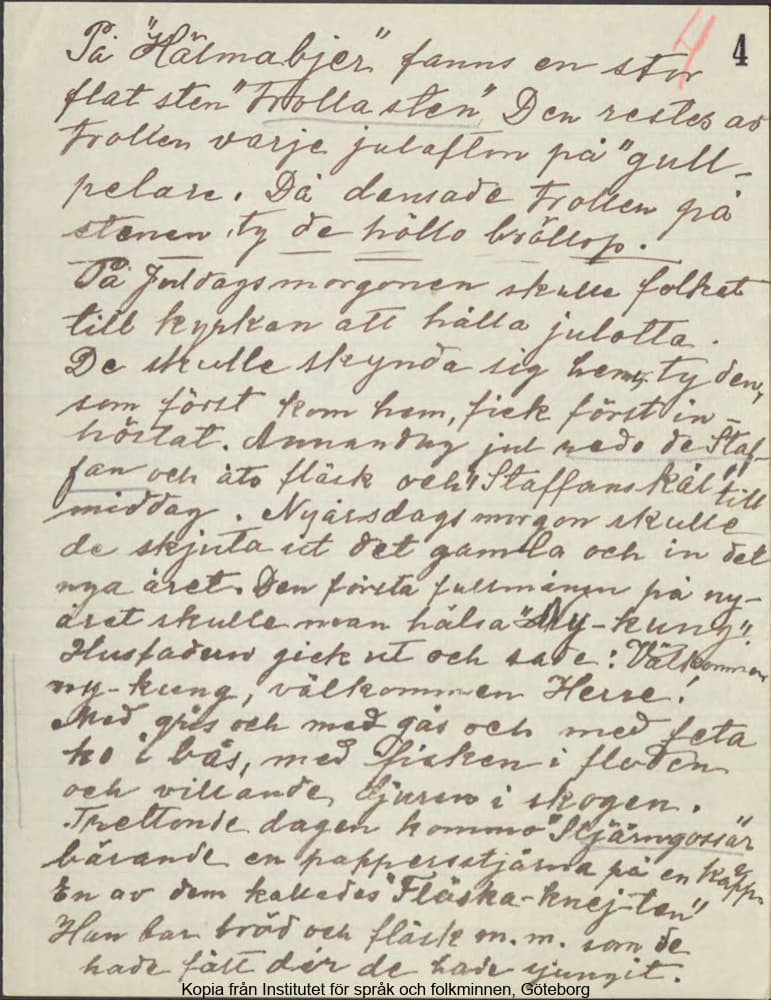 4 4
På "Hälmabjer" fanns en stor
flat sten "Trollasten" Den restes av
trollen varje julafton på "gull-
pelare. Då dansade trollen på
stenen, ty de höllo bröllop.
På Juldagsmorgonen skulle folket
till kyrkan att hålla julotta.
De skulle skynda sig hem, ty den,
som först kom hem, fick först in-
höstat. Annandag jul redo de Staf-
fan och åto fläsk och "Staffanskål" till
middag. Nyårsdagsmorgon skulle
de skjuta ut det gamla och in det
nya året. Den första fullmånen på ny-
året skulle man hälsa "Ny-kung".
Husfadern gick ut och sade: Välkommen
ny-kung, välkommen Herre!
Med gris och med gås och med feta
ko i bås, med fisken i floden
och villande djuren i skogen.
Trettonde dagen kommo "Stjärngossar"
bärande en pappersstjärna på en käpp.
En av dem kallades "Fläska-knejten"
Han bar bröd och fläsk m.m. som de
hade fått där de hade sjungit.
Kopia från Institutet för språk och folkminnen, Göteborg